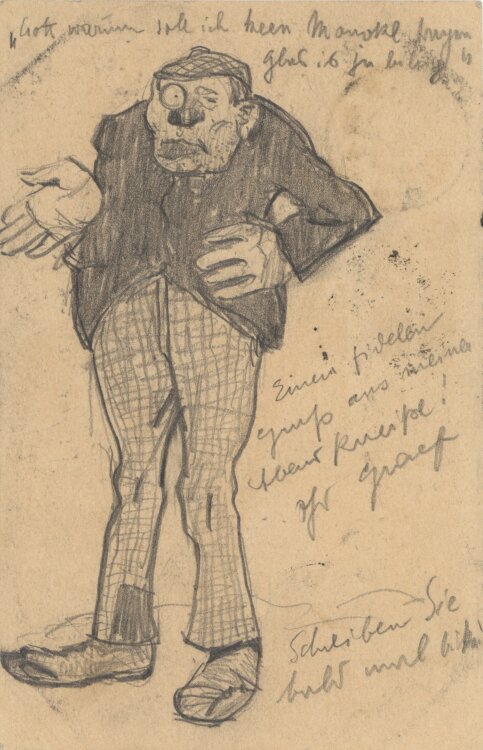 "Gott, warum soll ich keen Monokel tragen
Glas is ja billig"
Einen fidelen
Gruß aus meiner
Kneipe!
Ihr Graef
Schreiben Sie
bald mal bitte!